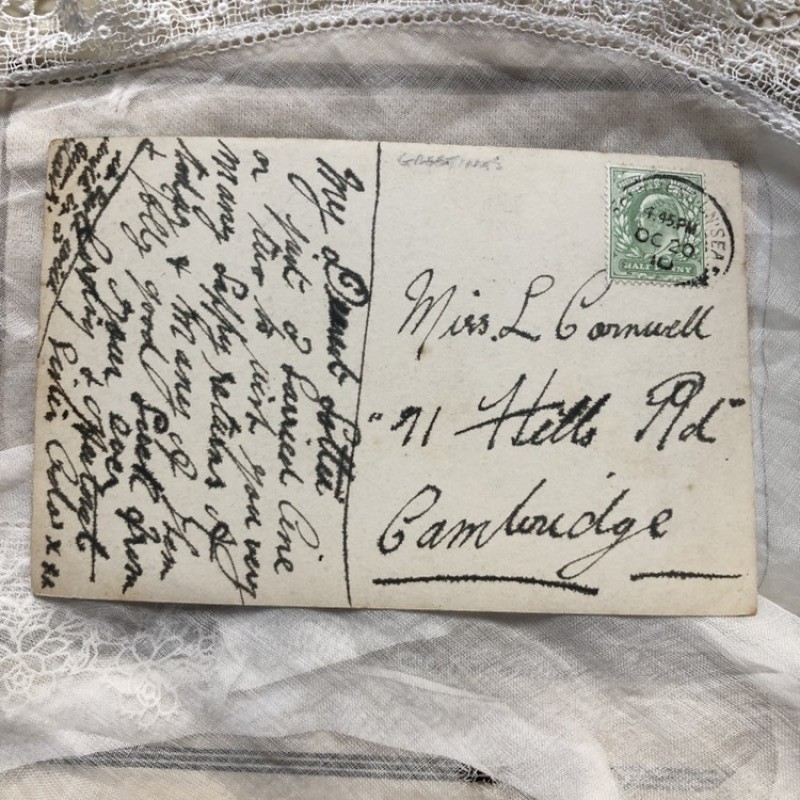 GREETINGS
4.45 PM
OC 20
10
HALFPENNY
Miss. L Cornwell
"71 Hills Rd"
Cambridge
My Dearest Lottie
just a hurried line
or two to wish you very
many happy returns of
today & many of them
& jolly good luck from
Your ever
loving &
Sister